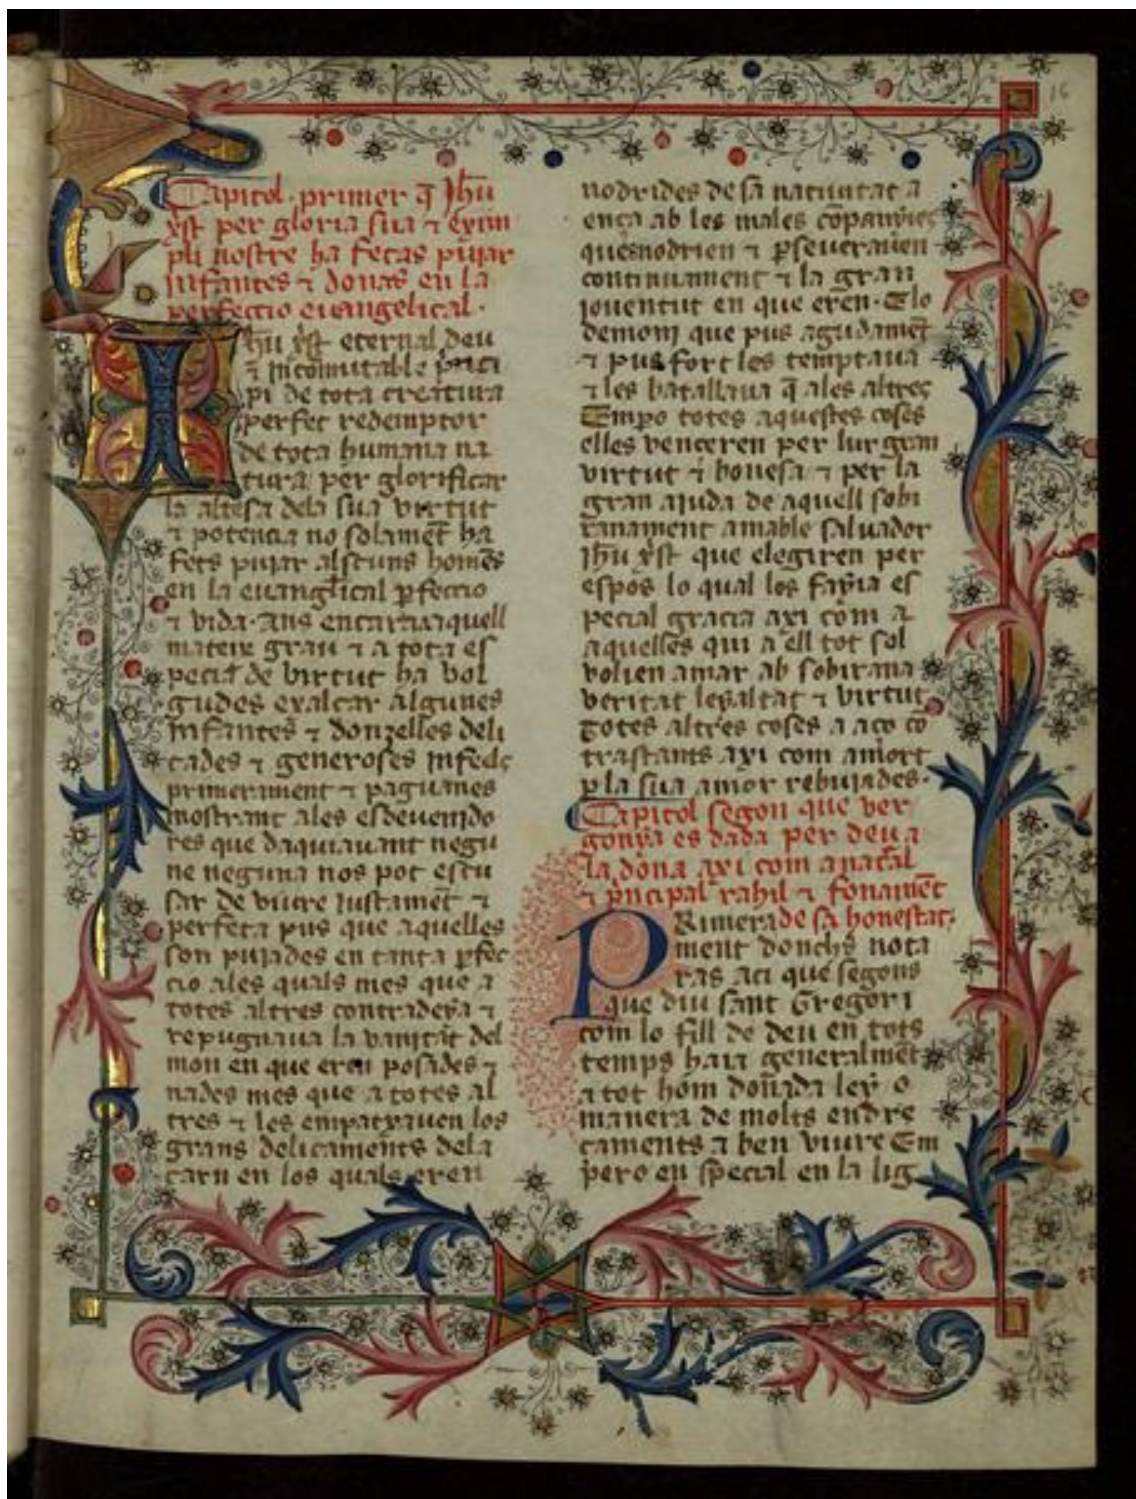 16
Capitol · primer q̄ Jhū
x̄st per gloria sua ⁊ exim
pli nostre ha fetas puiar
infantes ⁊ donas en la
perfeccio euangelical ·
Ihū x̄st eternal deu
⁊ incomutable pnci
pi de tota creatura
perfet redemptor
de tota humana na
tura per glorificar
la altesa dela sua virtut
⁊ potencia no solamēt ha
fets puiar alscuns homēs
en la euanglical ꝑfeccio
⁊ vida · ans encara aquell
mateix grau ⁊ a tota es
pecia de virtut ha vol
gudes exalçar algunes
Infantes ⁊ donzelles deli
cades ⁊ generoses infeels
primerament ⁊ paguanes
mostrant ales esdeuenido
res que daquiauant negu
ne neguna nos pot escu
sar de viure iustamēt ⁊
perfeta pus que aquelles
son puiades en tanta ꝑfec
cio ales quals mes que a
totes altres contradeya ⁊
repugnaua la vanitat del
mon en que eren posades ⁊
nades mes que a totes al
tres ⁊ les empatxauen los
grans delicaments dela
carn en los quals eren
nodrides de sa natiuitat a
ença ab les males cōpanyies
ques nodrien ⁊ ꝑseuerauen
continuament ⁊ la gran
iouentut en que eren · E lo
demoni que pus agudamēt
⁊ pus fort les temptaua
⁊ les batallaua q̄ ales altres
Empo totes aquestes coses
elles venceren per lur gran
virtut ⁊ bonesa ⁊ per la
gran aiuda de aquell sobi
ranament amable saluador
Jhū x̄st que elegiren per
espos lo qual los faÿia es
pecial gracia axi com a
aquelles qui a ell tot sol
volien amar ab sobirana
veritat leyaltat ⁊ virtut
totes altres coses a aço cō
trastants axi com a mort
ꝑ la sua amor rebuiades ·
Capitol segon que ver
gonya es dada per deu a
la dona axi com a natal
⁊ pncipal rahil ⁊ fonamēt
PRimera de sa honestat ·
ment donchs nota
ras aci que segons
que diu sant Gregori
com lo fill de deu en tots
temps haia generalmēt
a tot hom donada ley o
manera de molts endre
çaments a ben viure Em
pero en special en la lig